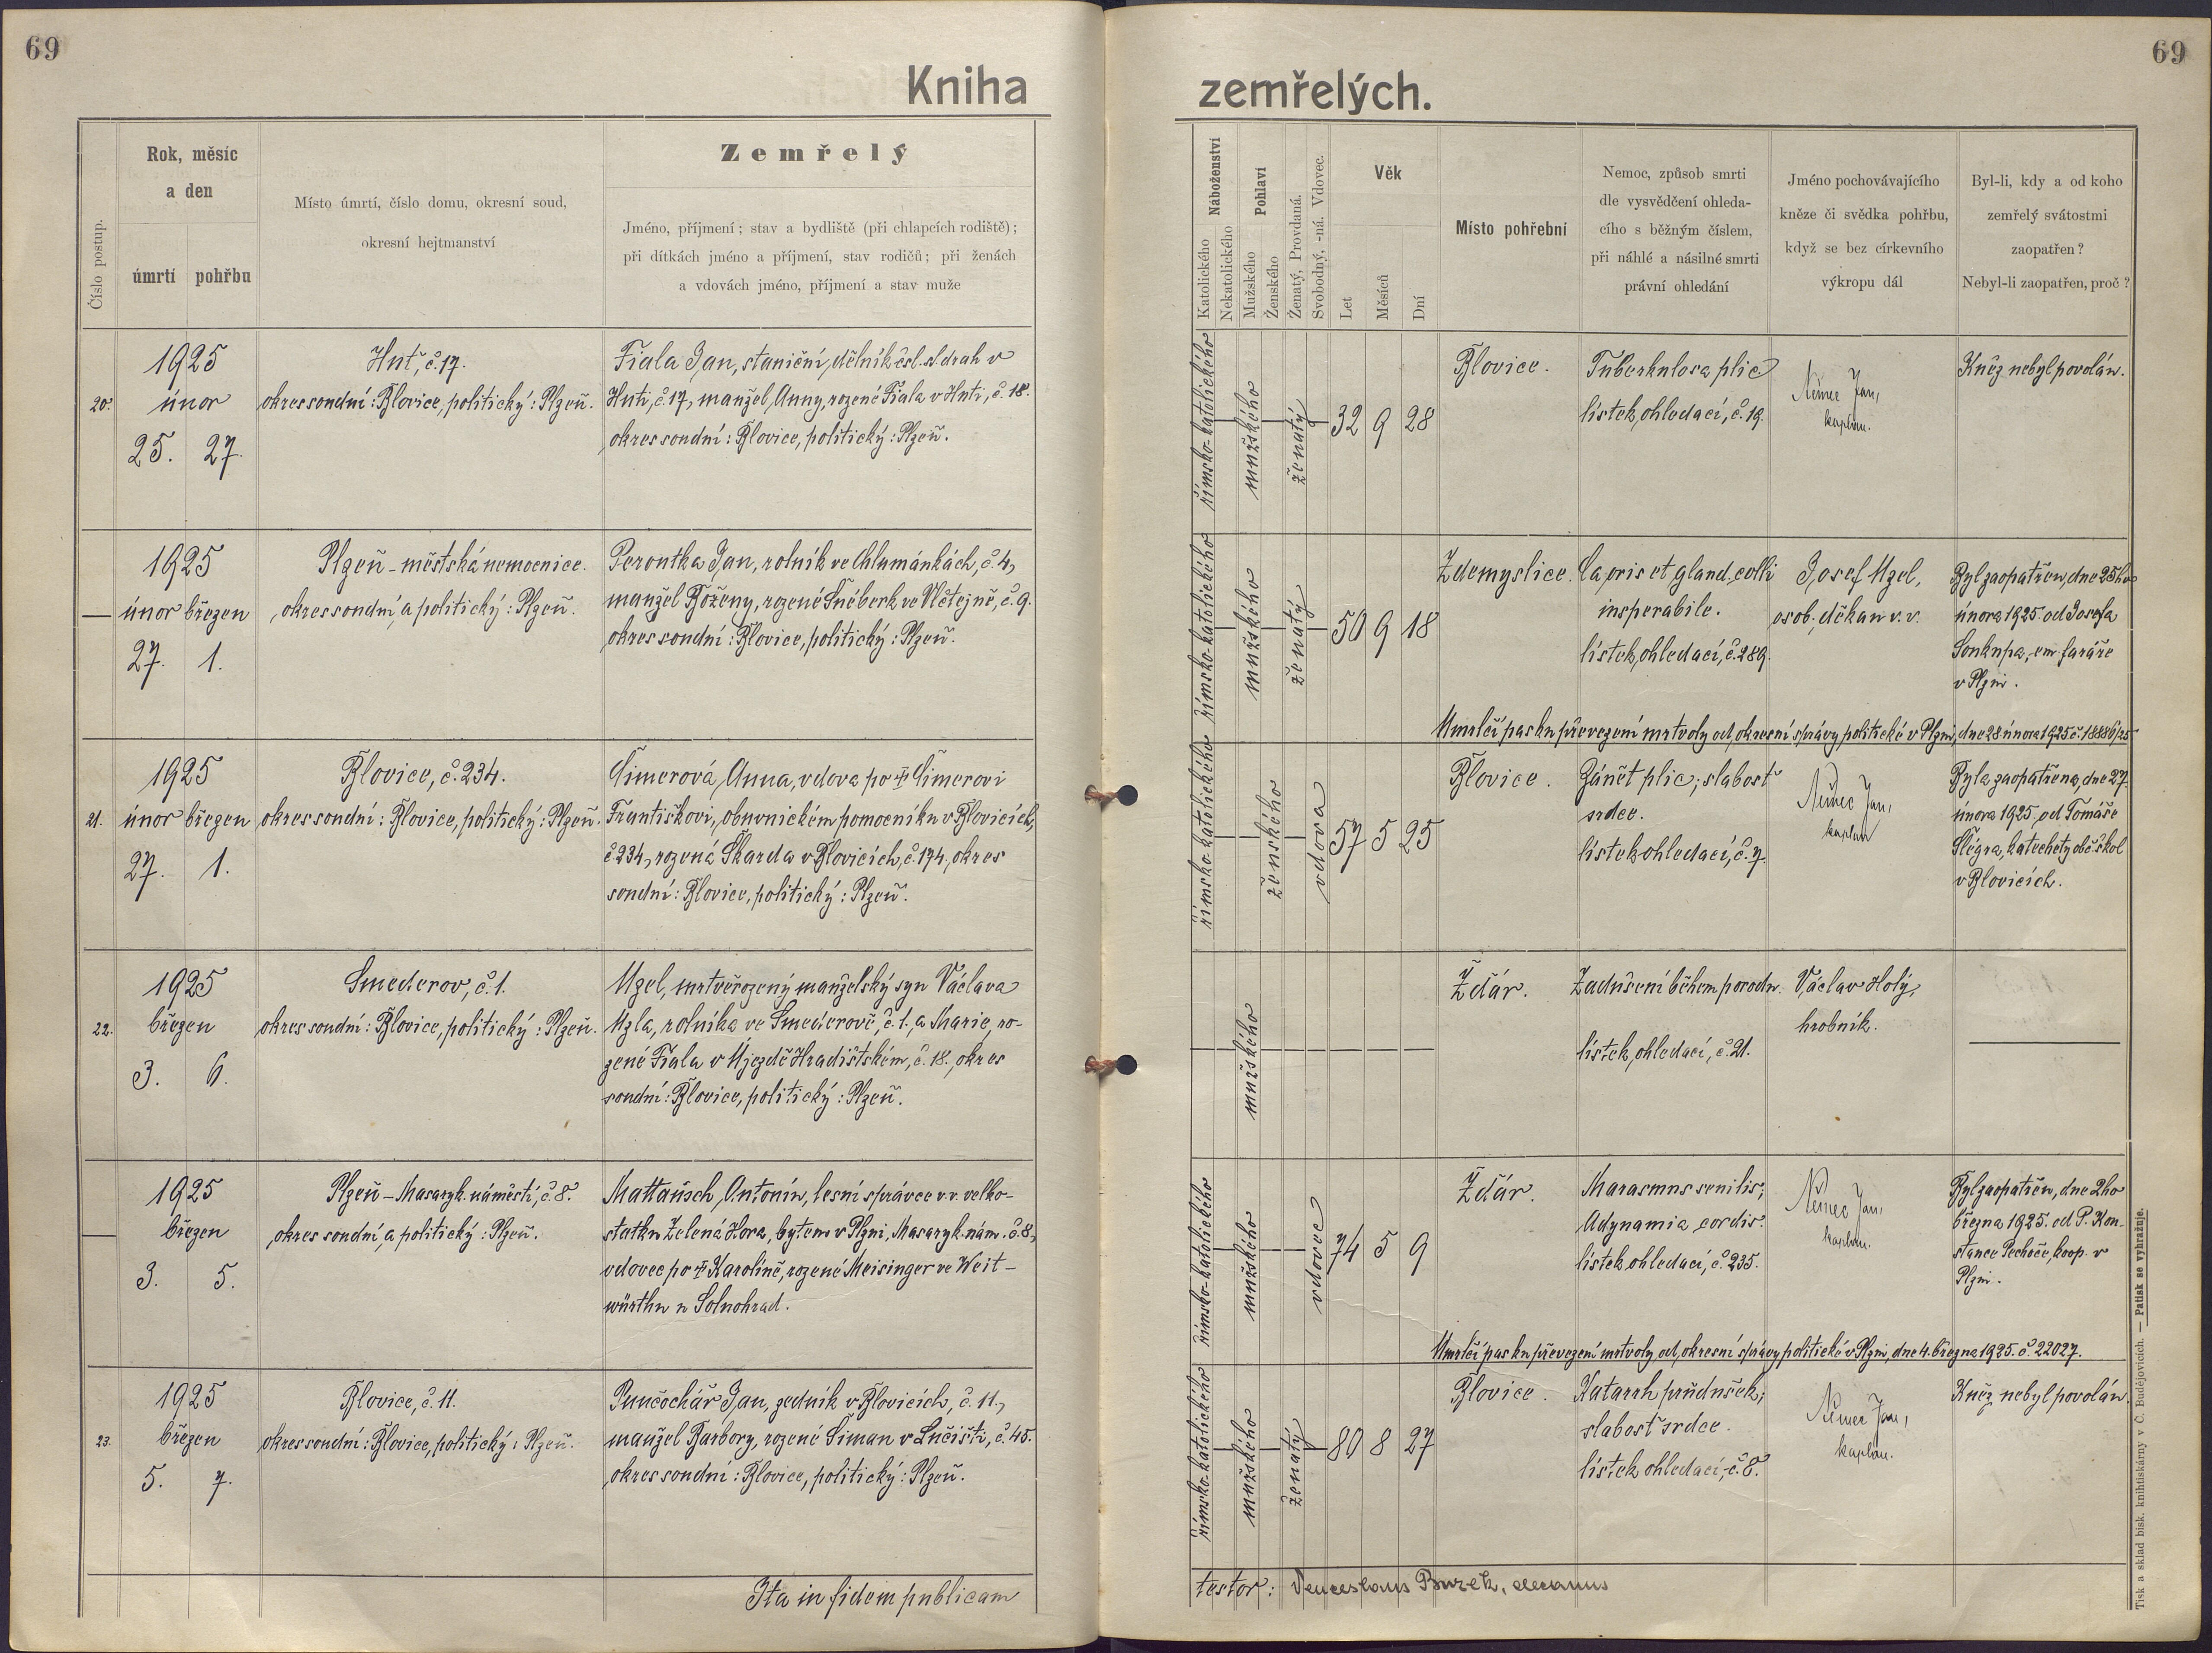 69
69
Kniha
zemřelých.
Číslo postup.
Rok, měsíc
a den
úmrtí
pohřbu
Místo úmrtí, číslo domu, okresní soud,
okresní hejtmanství
Zemřelý
Jméno, příjmení; stav a bydliště (při chlapcích rodiště);
při dítkách jméno a příjmení, stav rodičů; při ženách
a vdovách jméno, příjmení a stav muže
Náboženství
Katolického
Nekatolického
Pohlaví
Mužského
Ženského
Ženatý, Provdaná.
Svobodný, -ná. Vdovec.
Věk
Let
Měsíců
Dní
Místo pohřební
Nemoc, způsob smrti
dle vysvědčení ohleda-
cího s běžným číslem,
při náhlé a násilné smrti
právní ohledání
Jméno pochovávajícího
kněze či svědka pohřbu,
když se bez církevního
výkropu dál
Byl-li, kdy a od koho
zemřelý svátostmi
zaopatřen?
Nebyl-li zaopatřen, proč?
20.
1925
únor
25. 27.
Hut', č. 17.
okres soudní: Blovice, politický: Plzeň.
Fiala Jan, staniční dělník čsl. st. drah v
Huti, č. 17, manžel Anny, rozené Fiala v Huti, č. 18.
okres soudní: Blovice, politický: Plzeň.
římsko-katolického
mužského
ženatý
32 9 28
Blovice.
Tuberkulosa plic
lístek ohledací, č. 19.
Němec Jan,
kaplan.
Kněz nebyl povolán.
—
1925
únor březen
27. 1.
Plzeň - městská nemocnice.
okres soudní a politický: Plzeň.
Peroutka Jan, rolník ve Chlumánkách, č. 4,
manžel Boženy, rozené Šnéberk ve Vlčtejně, č. 9.
okres soudní: Blovice, politický: Plzeň.
římsko-katolického
mužského
ženatý
50 9 18
Zdemyslice.
Ca oris et gland. colli
insperabile.
lístek ohledací, č. 289.
Josef Uzel,
osob. děkan v. v.
Byl zaopatřen, dne 25ho
února 1925. od Josefa
Soukupa, em. faráře
v Plzni.
Umrlčí pas ku převezení mrtvoly od okresní správy politické v Plzni, dne 28 února 1925 č. 18886/25
21.
1925
únor březen
27. 1.
Blovice, č. 234.
okres soudní: Blovice, politický: Plzeň.
Šimerová Anna, vdova po † Šimerovi
Františkovi, obuvnickém pomocníku v Blovicích,
č. 234, rozená Škarda v Blovicích, č. 174, okres
soudní: Blovice, politický: Plzeň.
římsko-katolického
ženského
vdova
57 5 25
Blovice.
Zánět plic; slabost
srdce.
lístek ohledací, č. 7.
Němec Jan,
kaplan
Byla zaopatřena, dne 27.
února 1925 od Tomáše
Šlégra, katechety obč. škol
v Blovicích.
22.
1925
březen
3. 6.
Smederov, č. 1.
okres soudní: Blovice, politický: Plzeň.
Uzel, mrtvěrozený manželský syn Václava
Uzla, rolníka ve Smederově, č. 1., a Marie, ro-
zené Fiala v Újezdě Hradišťském, č. 18., okres
soudní: Blovice, politický: Plzeň.
mužského
Žďár.
Zadušení během porodu.
lístek ohledací, č. 21.
Václav Holý,
hrobník.
—
1925
březen
3. 5.
Plzeň - Masaryk. náměstí, č. 8.
okres soudní a politický: Plzeň.
Mattausch Antonín, lesní správce v. v. velko-
statku Zelená Hora, bytem v Plzni, Masaryk. nám. č. 8,
vdovec po † Karolině, rozené Meisinger ve Weit-
würthu u Solnohrad.
římsko-katolického
mužského
vdovec
74 5 9
Žďár.
Marasmus senilis;
Adynamia cordis.
lístek ohledací, č. 235.
Němec Jan,
kaplan.
Byl zaopatřen, dne 2ho
března 1925. od P. Kon-
stance Pechoče, koop. v
Plzni.
Umrlčí pas ku převezení mrtvoly od okresní správy politické v Plzni, dne 4. března 1925. č. 22027.
23.
1925
březen
5. 7.
Blovice, č. 11.
okres soudní: Blovice, politický: Plzeň.
Punčochář Jan, zedník v Blovicích, č. 11.,
manžel Barbory, rozené Šiman v Lučišti, č. 45.
okres soudní: Blovice, politický: Plzeň.
římsko-katolického
mužského
ženatý
80 8 27
Blovice.
Katarrh průdušek;
slabost srdce.
lístek ohledací, č. 8.
Němec Jan,
kaplan.
Kněz nebyl povolán.
Ita in fidem publicam
testor: Venceslaus Burek, decanus
Tisk a sklad bisk. knihtiskárny v Č. Budějovicích. — Patisk se vyhražuje.